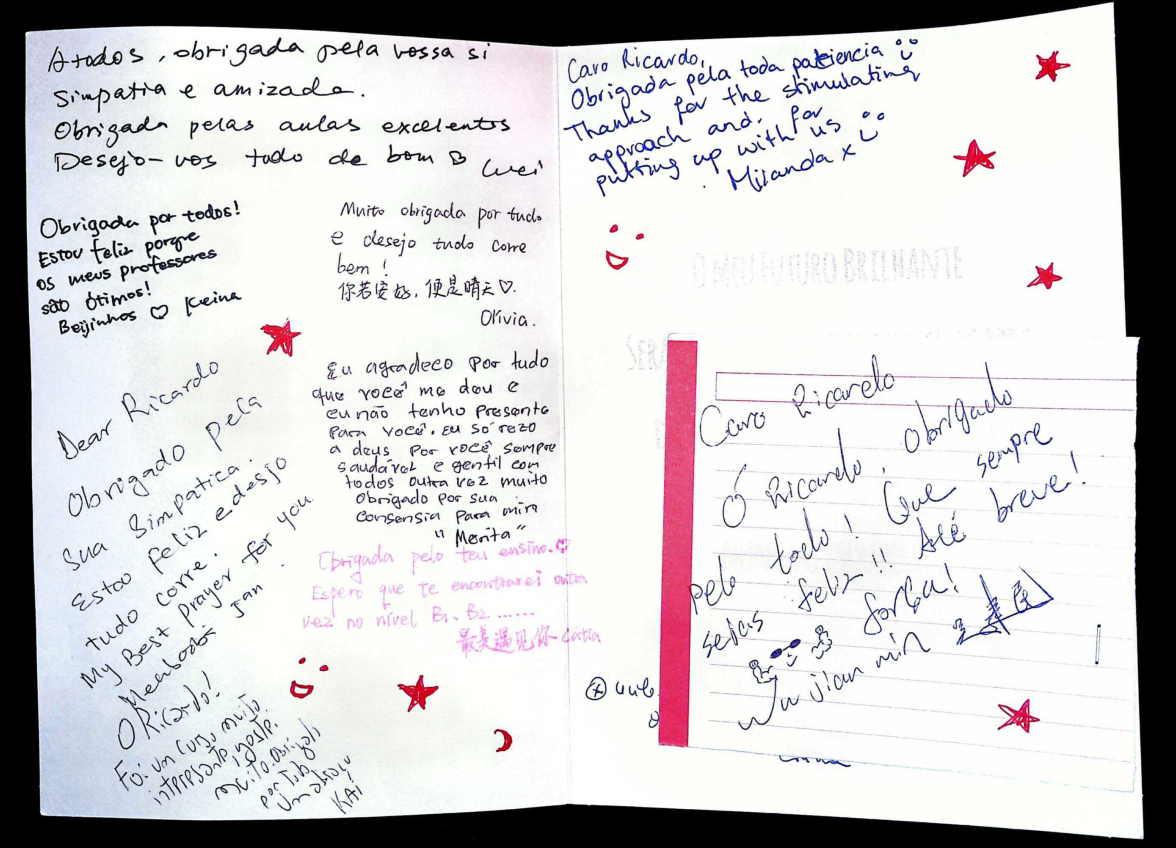 A todos, obrigada pela vossa si
simpatia e amizada.
Obrigada pelas aulas excelentes
Desejo-vos tudo de bom
Wei
Obrigada por todos!
Estou feliz porque
os meus professores
são ótimos!
Beijinhos ♡ Keina
Muito obrigada por tudo
e desejo tudo corre
bem!
你若安好，便是晴天♡.
Olivia.
Dear Ricardo
Obrigado pela
sua Simpatica.
Estou feliz e desejo
tudo corre.
My Best prayer for you.
Jan.
Eu agradeco por tudo
que você me deu e
eu não tenho presente
para você. Eu só rezo
a deus por você sempre
saudável e gentil com
todos outra vez muito
obrigado por sua
consensia para mim
"Merita"
Obrigada pelo teu ensino.♡
Espero que te encontrarei outra
vez no nível B1, B2......
最美遇见你 Cátia
O Ricardo!
Foi um curso muito
interessante, gostei
muito. Obrigado
por tudo
Um abraço
KAI
Caro Ricardo,
Obrigada pela toda paciencia
Thanks for the stimulating
approach and, for
putting up with us
Miranda x
O MEU FUTURO BRILHANTE
SERÁ
Caro Ricardo
Ó Ricardo, obrigado
pelo todo! Que sempre
sejas feliz!! Até breve!
forsa!
Wu jian min